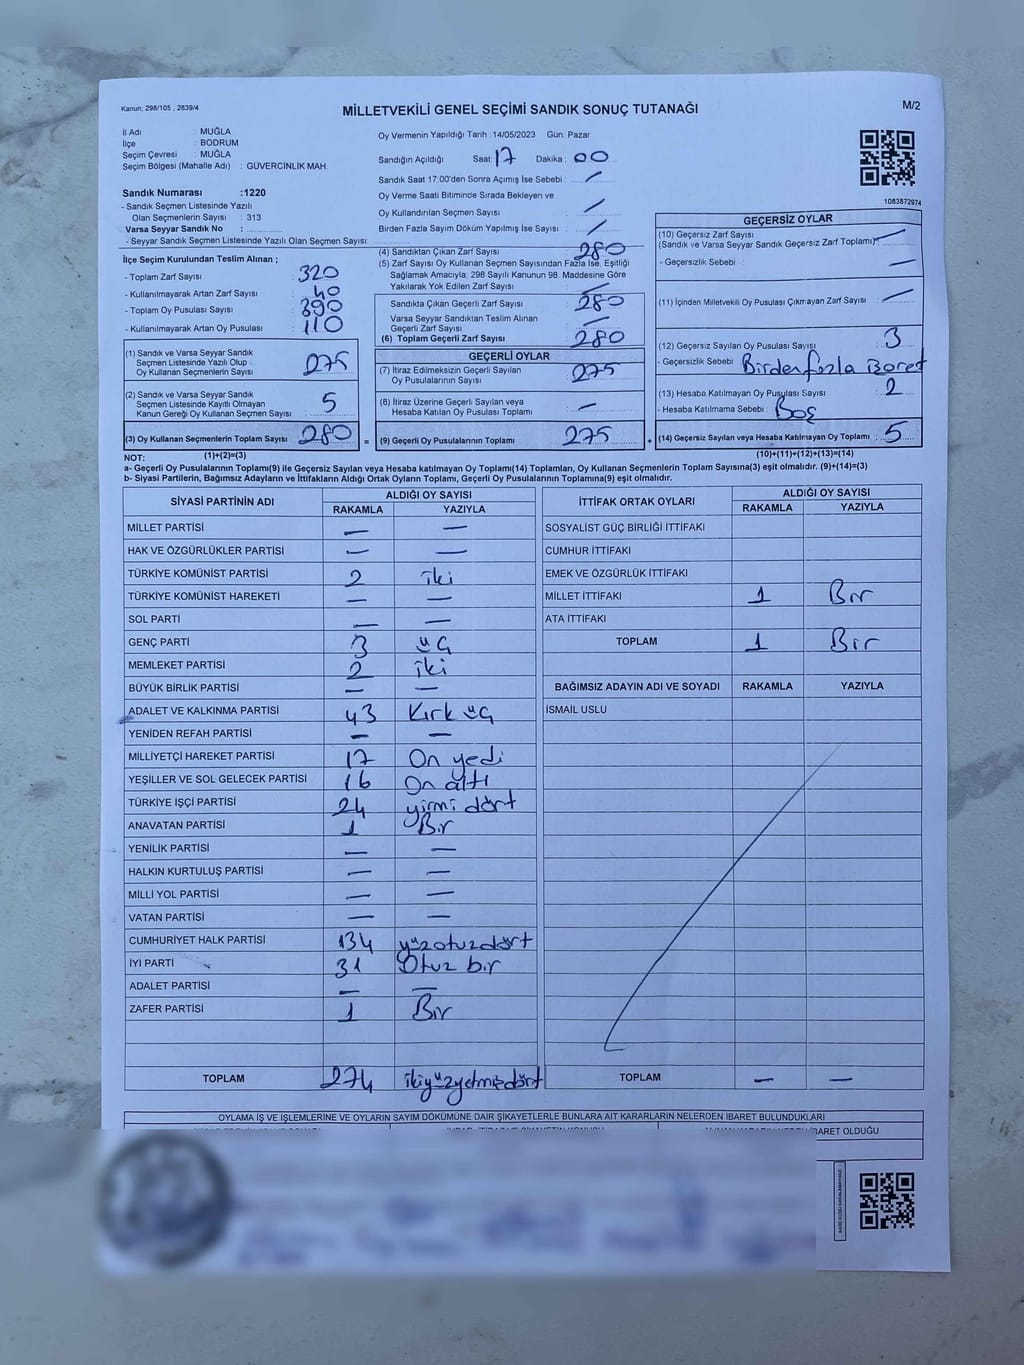 Kanun; 298/105 , 2839/4
MİLLETVEKİLİ GENEL SEÇİMİ SANDIK SONUÇ TUTANAĞI
M/2
İl Adı : MUĞLA
İlçe : BODRUM
Seçim Çevresi : MUĞLA
Seçim Bölgesi (Mahalle Adı) : GÜVERCİNLİK MAH.
Sandık Numarası :1220
- Sandık Seçmen Listesinde Yazılı
Olan Seçmenlerin Sayısı : 313
Varsa Seyyar Sandık No :
- Seyyar Sandık Seçmen Listesinde Yazılı Olan Seçmen Sayısı:
Oy Vermenin Yapıldığı Tarih :14/05/2023 Gün: Pazar
Sandığın Açıldığı Saat : 17 Dakika : 00
Sandık Saat 17:00'den Sonra Açımış İse Sebebi : —
Oy Verme Saati Bitiminde Sırada Bekleyen ve
Oy Kullandırılan Seçmen Sayısı : —
Birden Fazla Sayım Döküm Yapılmış İse Sayısı : —
1083872974
İlçe Seçim Kurulundan Teslim Alınan ;
- Toplam Zarf Sayısı : 320
- Kullanılmayarak Artan Zarf Sayısı : 40
- Toplam Oy Pusulası Sayısı : 390
- Kullanılmayarak Artan Oy Pusulası : 110
(1) Sandık ve Varsa Seyyar Sandık
Seçmen Listesinde Yazılı Olup
Oy Kullanan Seçmenlerin Sayısı : 275
(2) Sandık ve Varsa Seyyar Sandık
Seçmen Listesinde Kayıtlı Olmayan
Kanun Gereği Oy Kullanan Seçmen Sayısı : 5
(3) Oy Kullanan Seçmenlerin Toplam Sayısı : 280 =
(4) Sandıktan Çıkan Zarf Sayısı : 280
(5) Zarf Sayısı Oy Kullanan Seçmen Sayısından Fazla İse, Eşitliği
Sağlamak Amacıyla; 298 Sayılı Kanunun 98. Maddesine Göre
Yakılarak Yok Edilen Zarf Sayısı : —
Sandıkta Çıkan Geçerli Zarf Sayısı : 280
Varsa Seyyar Sandıktan Teslim Alınan
Geçerli Zarf Sayısı : —
(6) Toplam Geçerli Zarf Sayısı : 280
GEÇERLİ OYLAR
(7) İtiraz Edilmeksizin Geçerli Sayılan
Oy Pusulalarının Sayısı : 275
(8) İtiraz Üzerine Geçerli Sayılan veya
Hesaba Katılan Oy Pusulası Toplamı : —
(9) Geçerli Oy Pusulalarının Toplamı : 275 +
GEÇERSİZ OYLAR
(10) Geçersiz Zarf Sayısı
(Sandık ve Varsa Seyyar Sandık Geçersiz Zarf Toplamı): —
- Geçersizlik Sebebi : —
(11) İçinden Milletvekili Oy Pusulası Çıkmayan Zarf Sayısı : —
(12) Geçersiz Sayılan Oy Pusulası Sayısı : 3
- Geçersizlik Sebebi : Birden fazla
(13) Hesaba Katılmayan Oy Pusulası Sayısı : 2
- Hesaba Katılmama Sebebi : Boş
(14) Geçersiz Sayılan veya Hesaba Katılmayan Oy Toplamı : 5
NOT: (1)+(2)=(3) (10)+(11)+(12)+(13)=(14)
a- Geçerli Oy Pusulalarının Toplamı(9) ile Geçersiz Sayılan veya Hesaba katılmayan Oy Toplamı(14) Toplamları, Oy Kullanan Seçmenlerin Toplam Sayısına(3) eşit olmalıdır. (9)+(14)=(3)
b- Siyasi Partilerin, Bağımsız Adayların ve İttifakların Aldığı Ortak Oyların Toplamı, Geçerli Oy Pusulalarının Toplamına(9) eşit olmalıdır.
SİYASİ PARTİNİN ADI ALDIĞI OY SAYISI
RAKAMLA YAZIYLA
MİLLET PARTİSİ — —
HAK VE ÖZGÜRLÜKLER PARTİSİ — —
TÜRKİYE KOMÜNİST PARTİSİ 2 iki
TÜRKİYE KOMÜNİST HAREKETİ — —
SOL PARTİ — —
GENÇ PARTİ 3 üç
MEMLEKET PARTİSİ 2 iki
BÜYÜK BİRLİK PARTİSİ — —
ADALET VE KALKINMA PARTİSİ 43 Kırk üç
YENİDEN REFAH PARTİSİ — —
MİLLİYETÇİ HAREKET PARTİSİ 17 On yedi
YEŞİLLER VE SOL GELECEK PARTİSİ 16 On altı
TÜRKİYE İŞÇİ PARTİSİ 24 yirmi dört
ANAVATAN PARTİSİ 1 Bir
YENİLİK PARTİSİ — —
HALKIN KURTULUŞ PARTİSİ — —
MİLLİ YOL PARTİSİ — —
VATAN PARTİSİ — —
CUMHURİYET HALK PARTİSİ 134 yüzotuzdört
İYİ PARTİ 31 Otuz bir
ADALET PARTİSİ — —
ZAFER PARTİSİ 1 Bir
TOPLAM 274 ikiyüzyetmişdört
İTTİFAK ORTAK OYLARI ALDIĞI OY SAYISI
RAKAMLA YAZIYLA
SOSYALİST GÜÇ BİRLİĞİ İTTİFAKI
CUMHUR İTTİFAKI
EMEK VE ÖZGÜRLÜK İTTİFAKI
MİLLET İTTİFAKI 1 Bir
ATA İTTİFAKI
TOPLAM 1 Bir
BAĞIMSIZ ADAYIN ADI VE SOYADI RAKAMLA YAZIYLA
İSMAİL USLU
TOPLAM — —
OYLAMA İŞ VE İŞLEMLERİNE VE OYLARIN SAYIM DÖKÜMÜNE DAİR ŞİKAYETLERLE BUNLARA AİT KARARLARIN NELERDEN İBARET BULUNDUKLARI
İBARET OLDUĞU